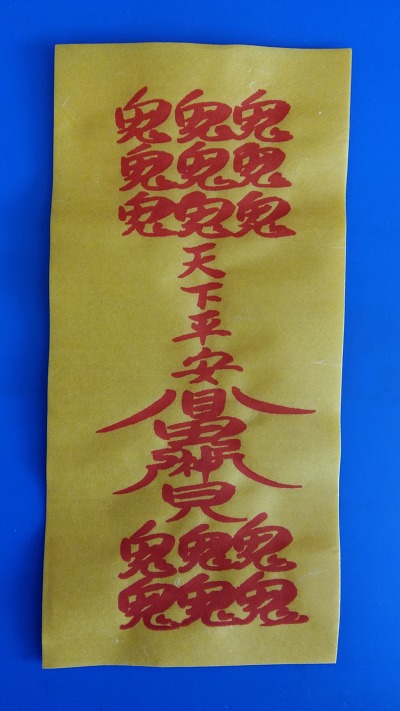 鬼鬼鬼
鬼鬼鬼
鬼鬼鬼
天
下
平
安
鬼鬼鬼
鬼鬼鬼